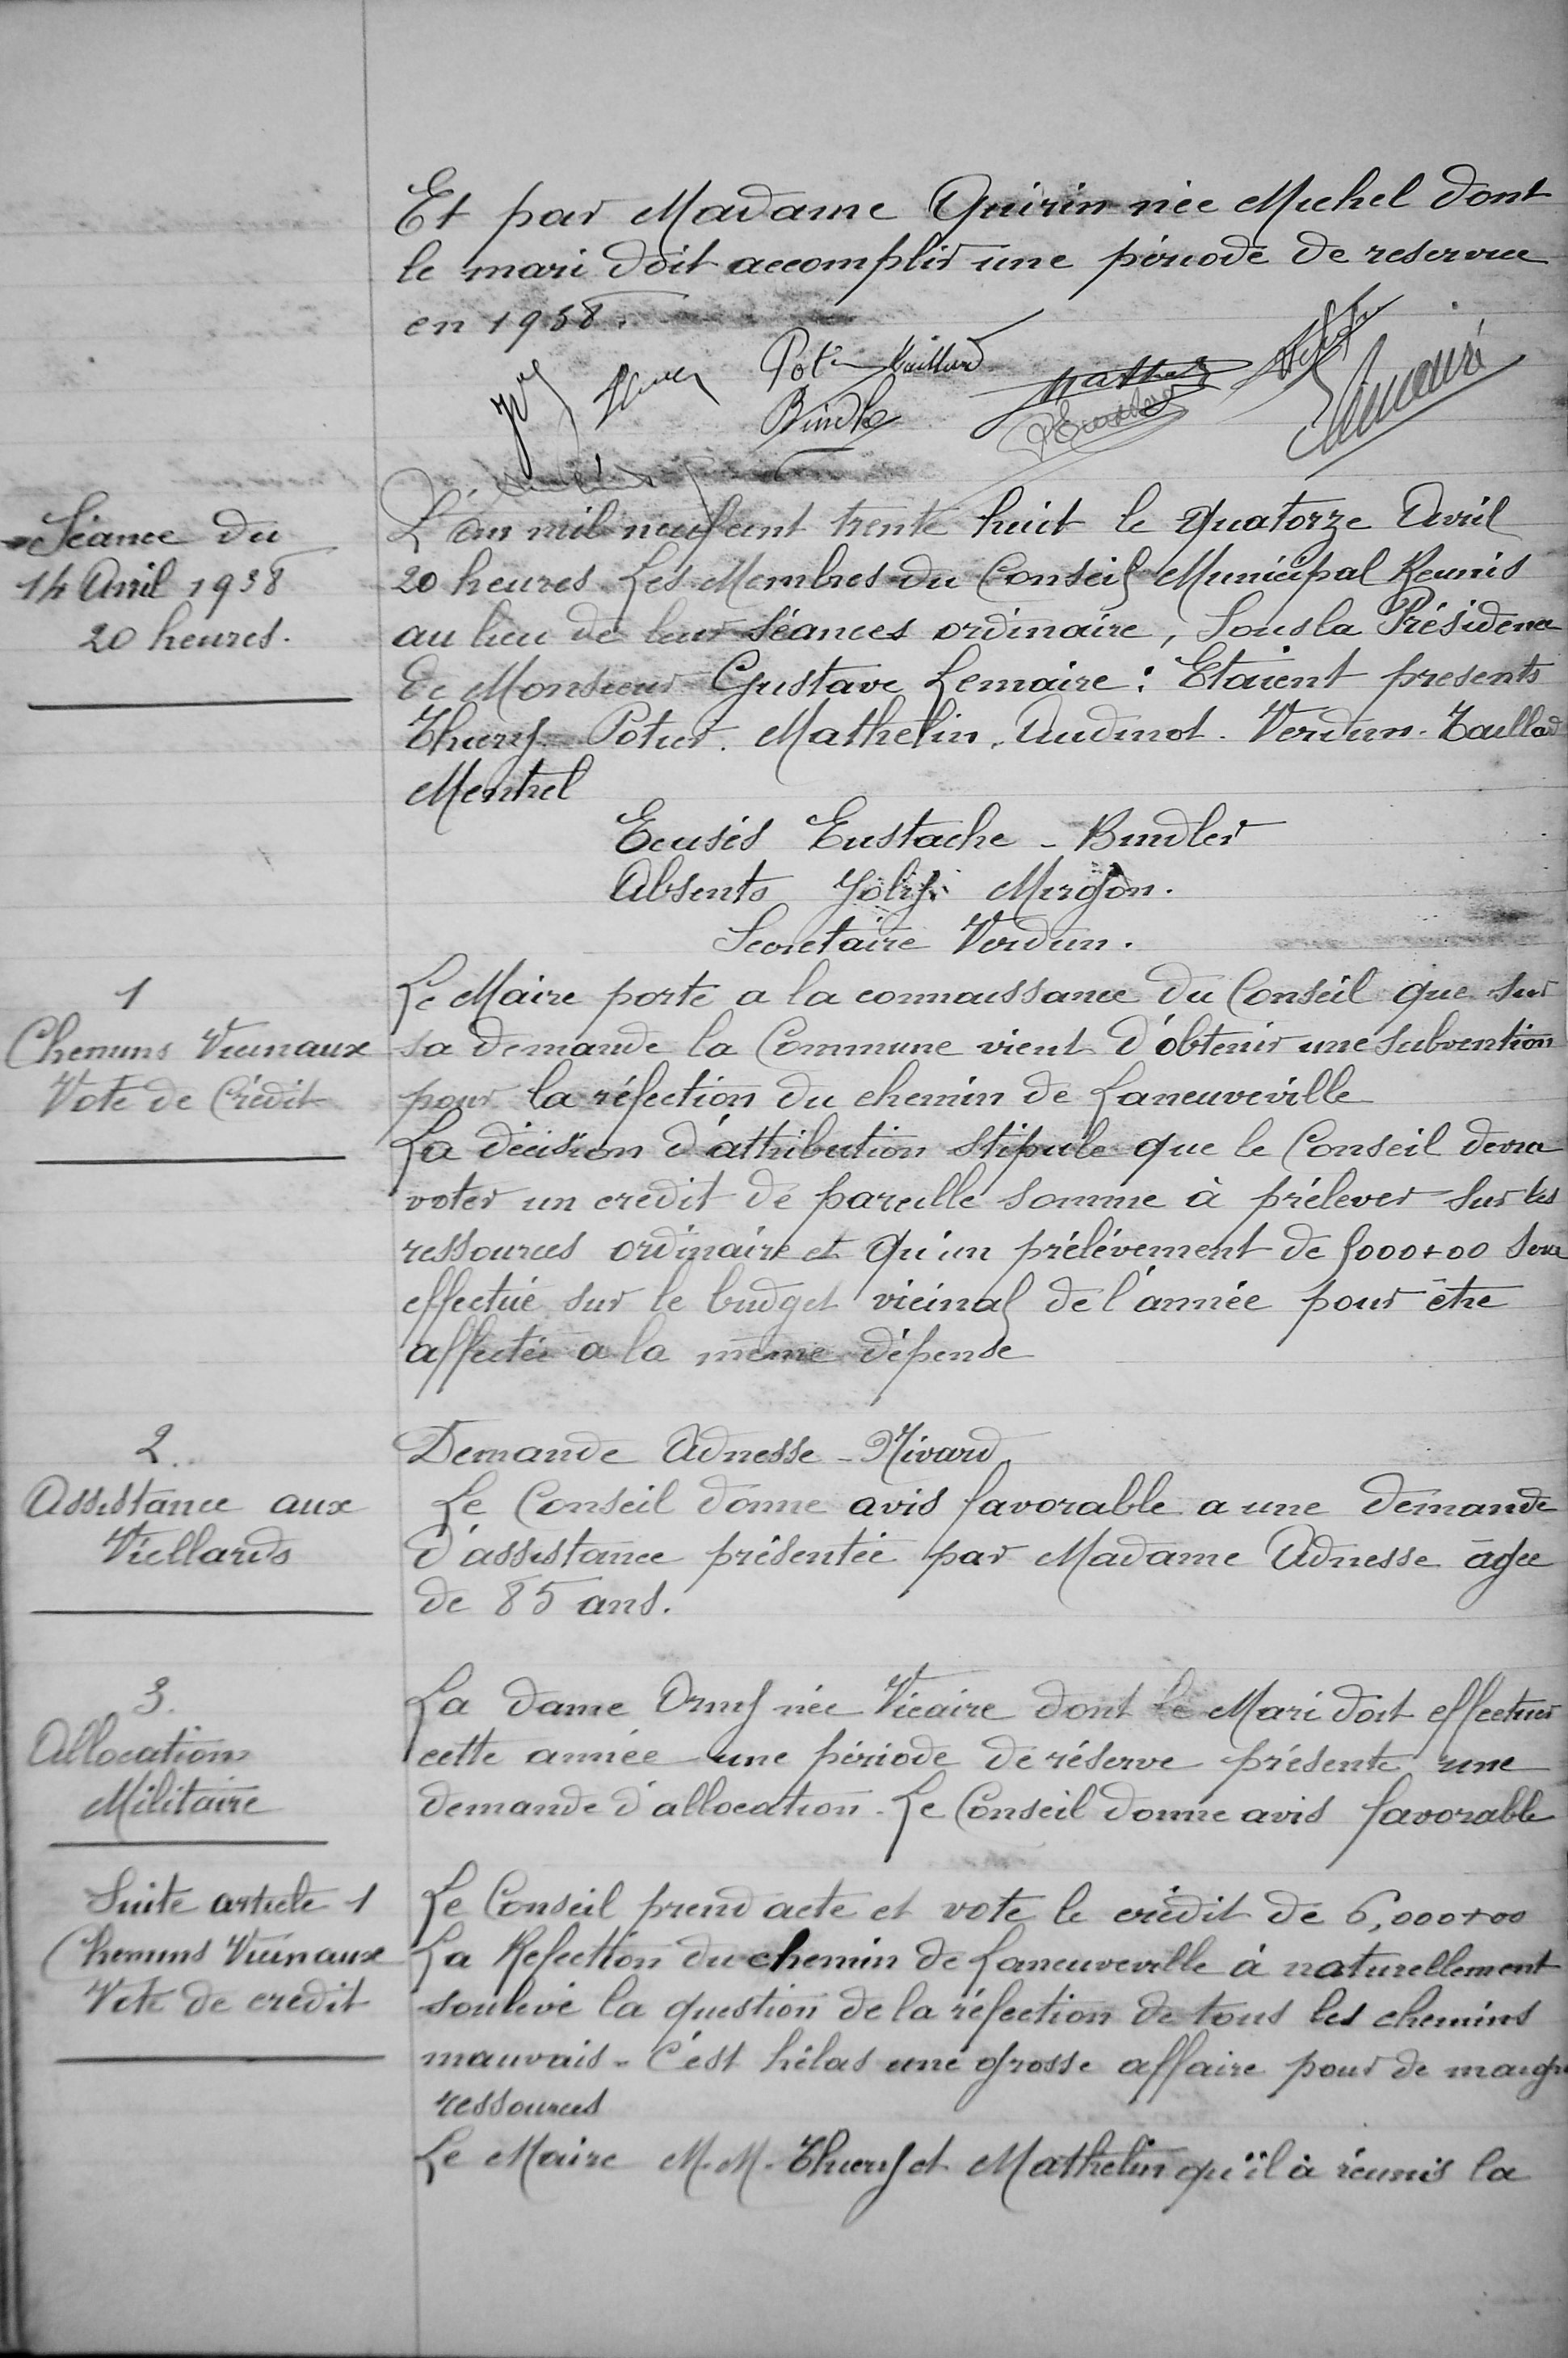 Et par Madame Quirin née Michel dont
le mari doit accomplir une période de reservee
en 1938.
Bindle
Séance du
14 Avril 1938
20 heures.
L'an mil neufcent trente huit le Quatorze Avril
20 heures Les Membres du Conseil Municipal Reunis
au lieu de leur Séances ordinaire, Sous la Présidence
de Monsieur Gustave Lemaire : Etaient presents
Thiery. Potier. Mathelin. Audinot. Verdun. Taillard
Mentrel
Ecusés Eustache - Bindler
Absents Joly. Mirgon.
Secretaire Verdun.
1
Chemins Vicinaux
Vote de Crédit
Le Maire porte a la connaissance du Conseil que sur
sa demande la Commune vient d'obtenir une subvention
pour la réfection du chemin de Laneuveville
La décision d'attribution stipule que le Conseil devra
voter un credit de pareille somme à prélever sur les
ressources ordinaire et qu'un prélévement de 5000+00 sera
effectué sur le budget vicinal de l'année pour être
affectée a la même dépense
2.
Assistance aux
Viellards
Demande Adnesse - Nivard
Le Conseil donne avis favorable a une demande
d'assistance présentée par Madame Adnesse âgée
de 85 ans.
3.
Allocation
Militaire
La dame Orny née Vicaire dont le Mari doit effectuer
cette année une période de réserve présente une
demande d'allocation. Le Conseil donne avis favorable
Suite article 1
Chemins Vicinaux
Vote de credit
Le Conseil prend acte et vote le crédit de 6,000+00
La Refection du chemin de Laneuveville à naturellement
soulevé la question de la réfection de tous les chemins
mauvais - C'est hélas une grosse affaire pour de maigre
ressources
Le Maire M.M. Thiery et Mathelin qu'il à réunis la